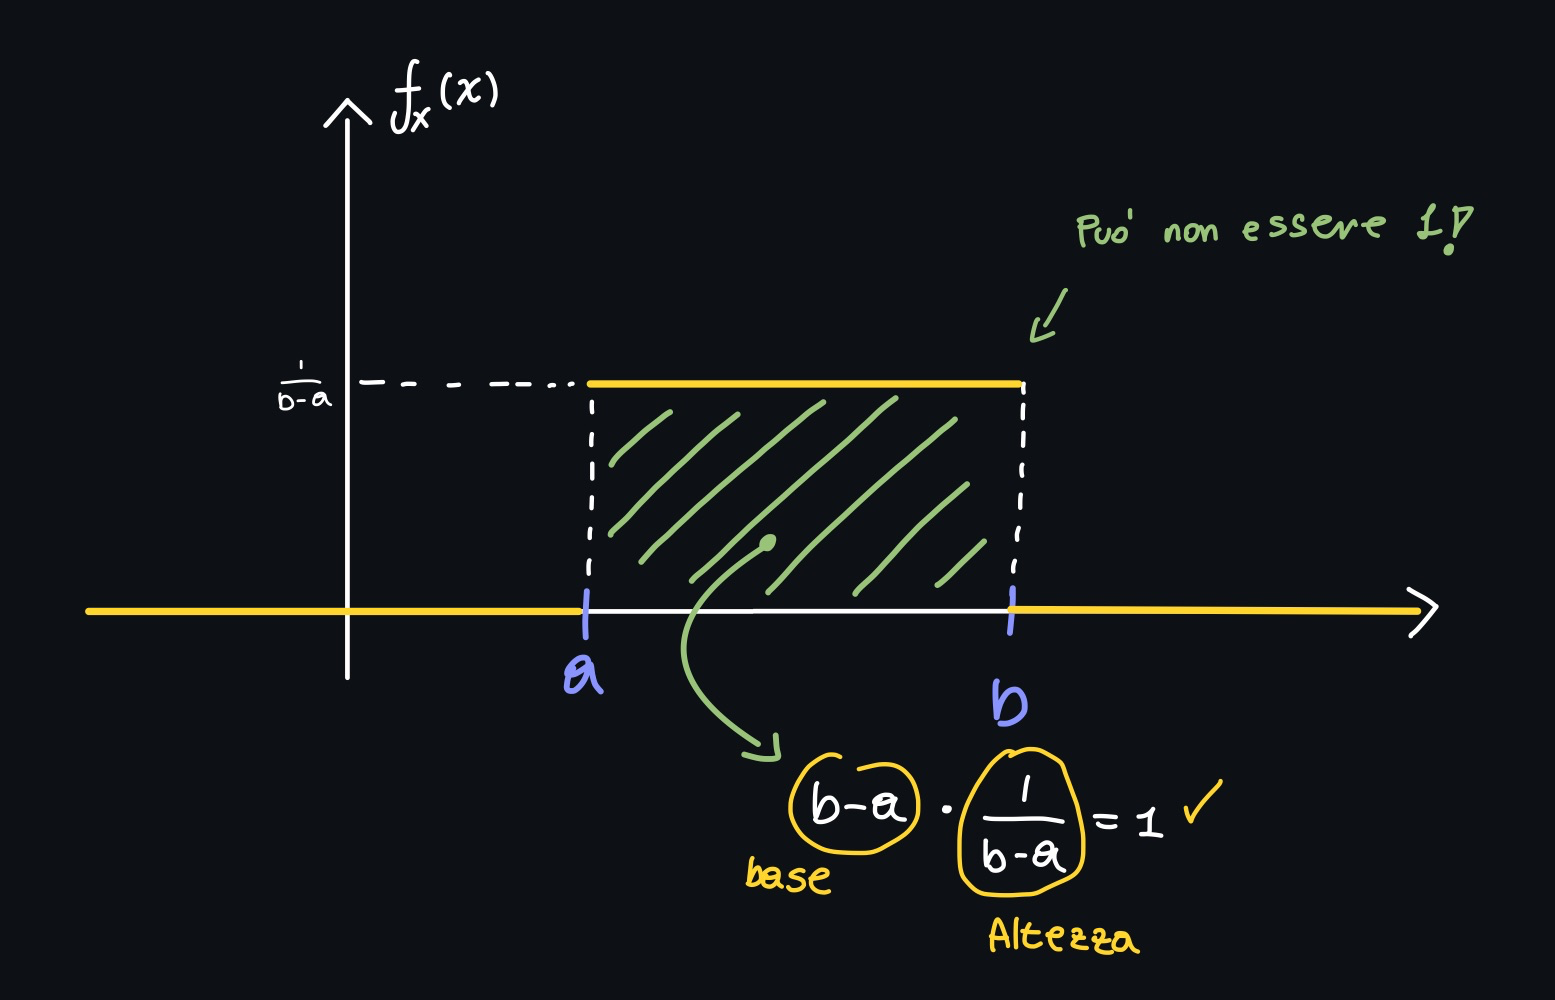 fx(x)
Può non essere 1!
1/b-a
a
b
b-a · 1/b-a = 1 ✓
base
Altezza